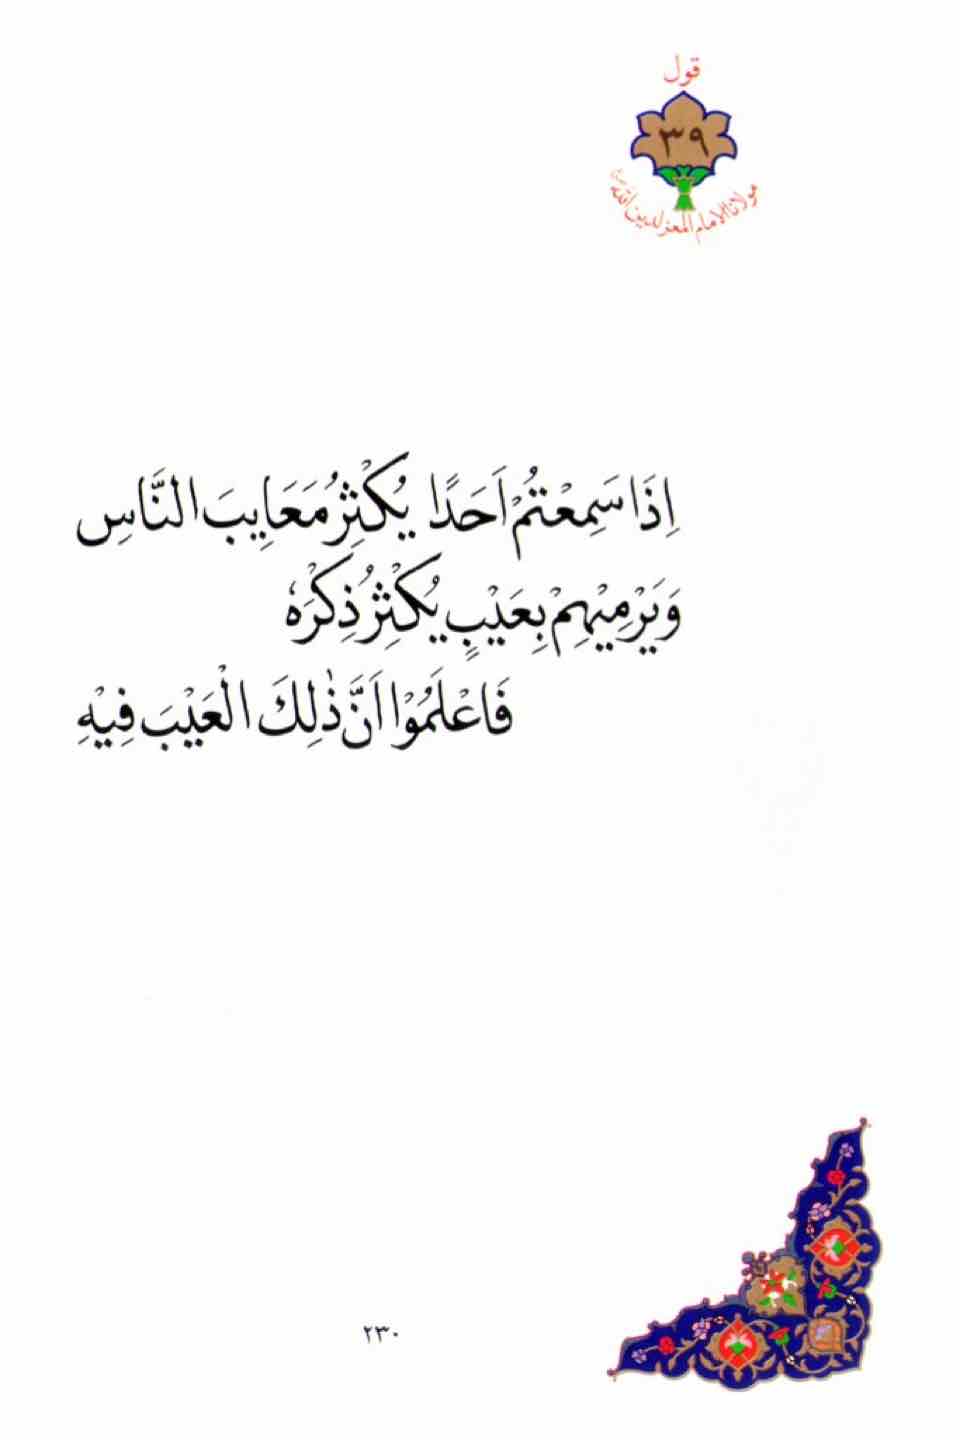 قول
٣٩
مولانا الامام المعز لدين الله
اِذَا سَمِعْتُمْ اَحَدًا يُكْثِرُ مَعَايِبَ النَّاسِ
وَيَرْمِيْهِمْ بِعَيْبٍ يُكْثِرُ ذِكْرَهٗ
فَاعْلَمُوْا اَنَّ ذٰلِكَ الْعَيْبَ فِيْهِ
٢٣٠